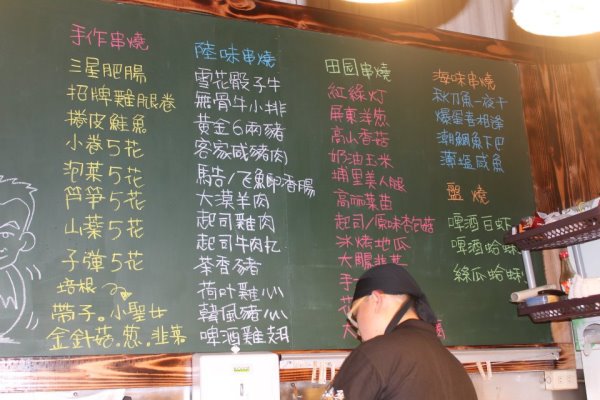 手作串燒
三星肥腸
招牌雞腿卷
捲皮鮭魚
小卷5花
泡菜5花
筍筍5花
山藥5花
子彈5花
培根
帶子.小聖女
金針菇.蔥.韭菜
陸味串燒
雪花骰子牛
無骨牛小排
黃金6兩豬
客家咸豬肉
馬告/飞魚卵香腸
大漠羊肉
起司雞肉
起司牛肉丸
茶香豬
荷叶雞心
韓風豬心
啤酒雞翅
田园串燒
紅綠灯
屏東洋蔥
高山香菇
奶油玉米
埔里美人腿
高丽菜苗
起司/原味杏包菇
冰烤地瓜
大腸韭菜
海味串燒
秋刀魚一夜干
爆蛋香柳洋
潮鯛魚下巴
薄塩咸魚
盤燒
啤酒白虾
啤酒蛤蛎
絲瓜蛤蛎